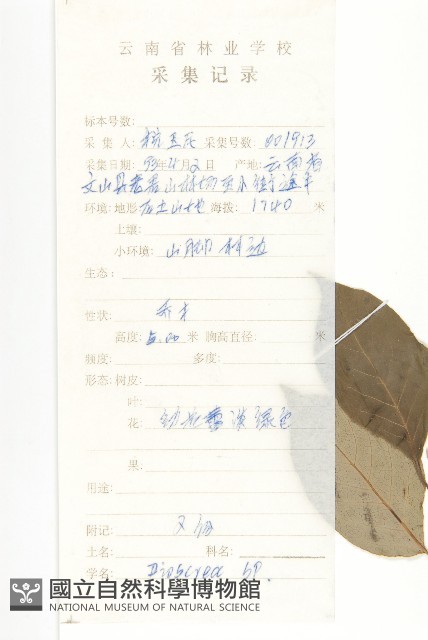 云南省林业学校
采集记录
标本号数:
采集人: 采集号数: 001913
采集日期: 93年4月2日 产地: 云南省
文山县老君山林场至小街
环境: 地形 石土山地 海拨: 1740 米
土壤:
小环境: 山脚林边
生态:
性状: 乔木
高度: 5.00 米 胸高直径: 米
频度: 多度:
形态: 树皮:
叶:
花: 淡绿色
果:
用途:
附记:
土名: 科名:
学名: sp.
國立自然科學博物館
NATIONAL MUSEUM OF NATURAL SCIENCE